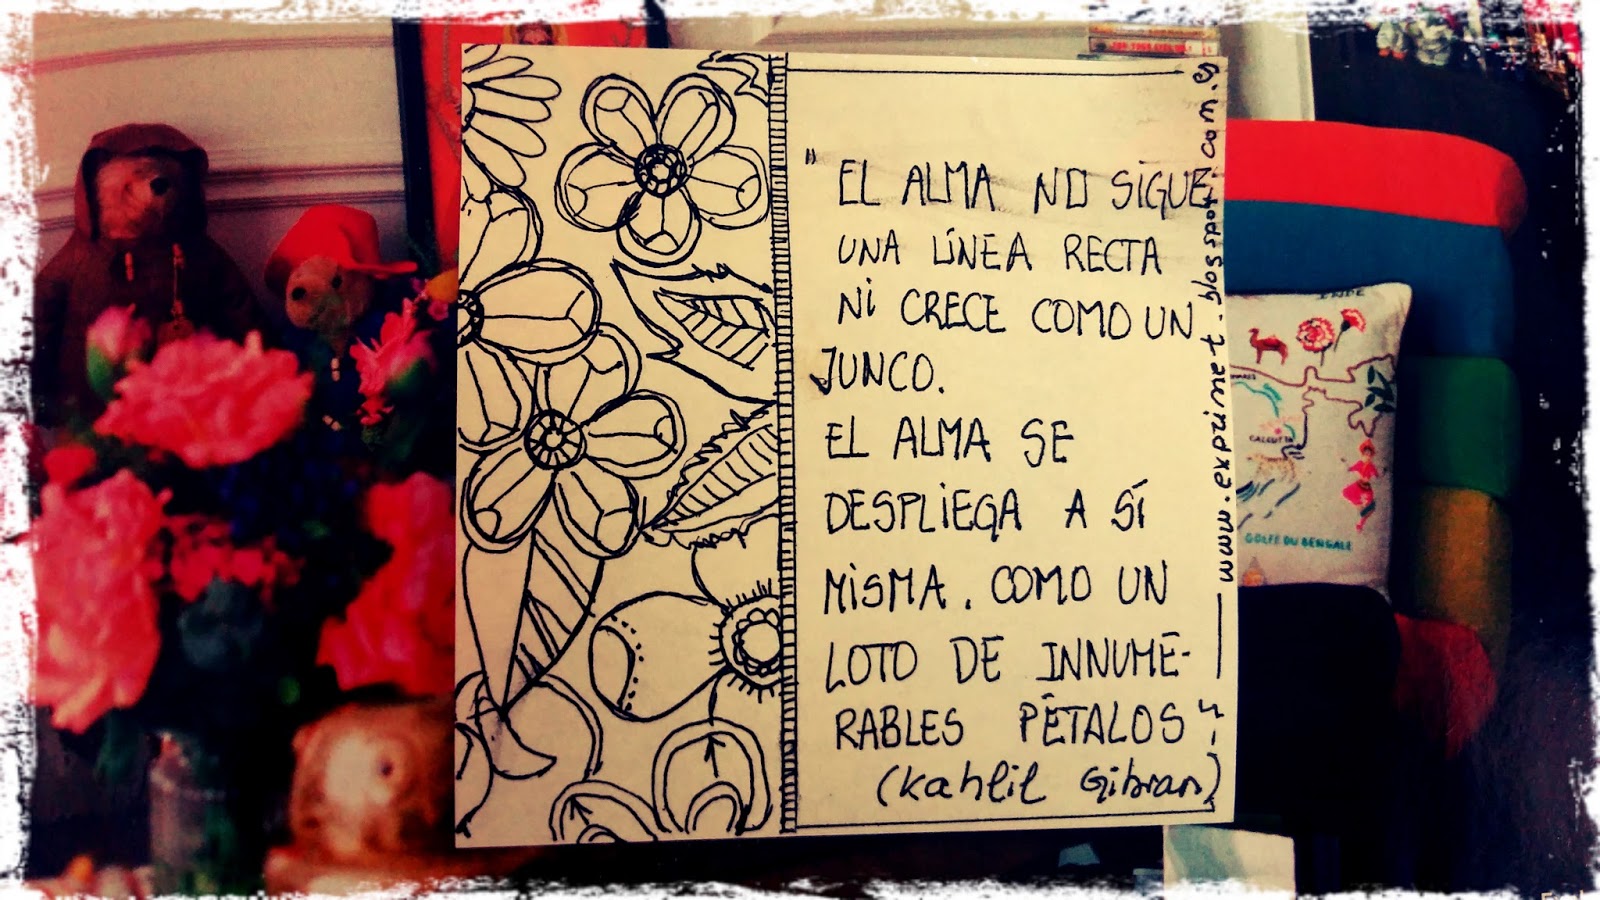 " EL ALMA NO SIGUE
UNA LÍNEA RECTA
NI CRECE COMO UN
JUNCO.
EL ALMA SE
DESPLIEGA A SÍ
MISMA. COMO UN
LOTO DE INNUME-
RABLES PÉTALOS "
(Kahlil Gibran)
www.exprimet.blogspot.com.es
CALCUTTA
GOLFE DU BENGALE